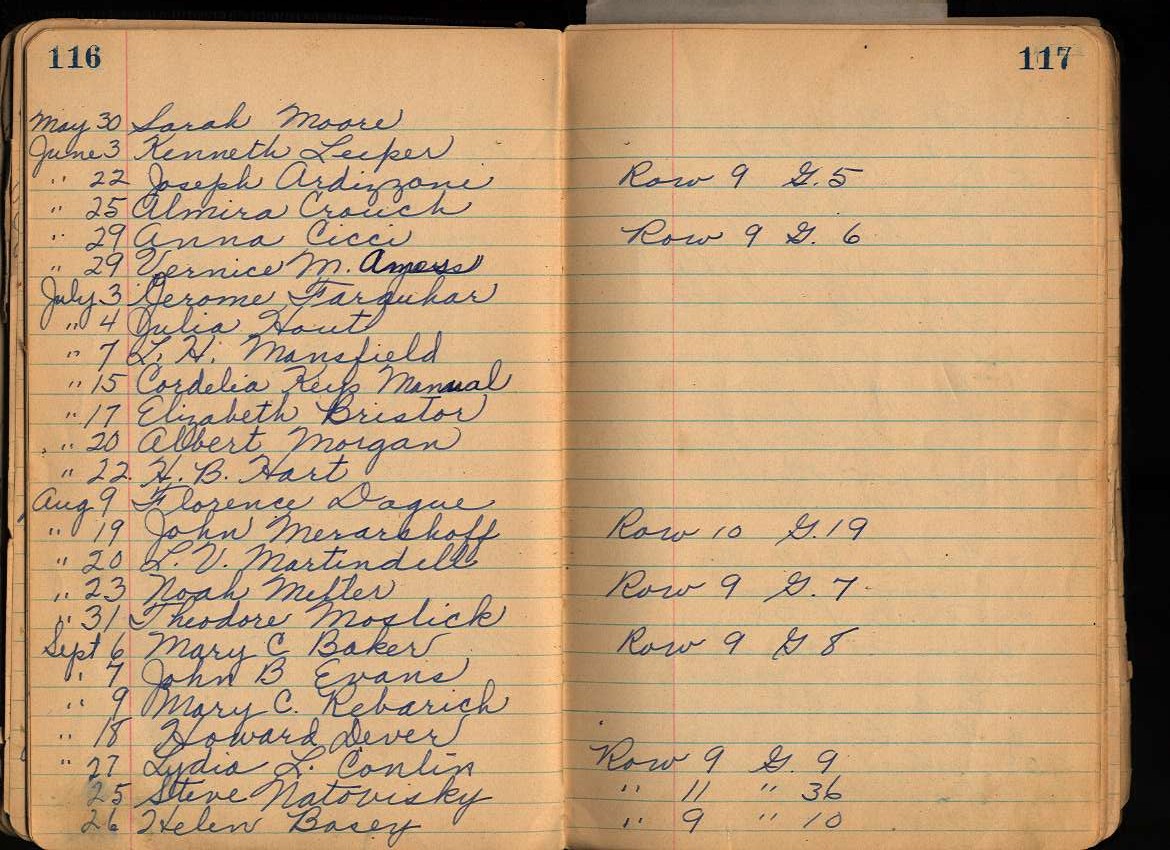 116 117
May 30 Sarah Moore
June 3 Kenneth Leiper
" 22 Joseph Ardizzone Row 9 G. 5
" 25 Almira Crouch
" 29 Anna Cicci Row 9 G. 6
" 29 Vernice M. Amoss
July 3 Jerome Farquhar
" 4 Julia Hout
" 7 L. H. Mansfield
" 15 Cordelia Keys Manual
" 17 Elizabeth Bristor
" 20 Albert Morgan
" 22 H. B. Hart
Aug 9 Florence Dague
" 19 John Row 10 G. 19
" 20 L. V. Martindell
" 23 Noah Row 9 G. 7.
" 31 Theodore Mostick
Sept 6 Mary C Baker Row 9 G 8
" 7 John B Evans
" 9 Mary C. Rebarich
" 18 Howard Dever
" 27 Lydia L. Conlin Row 9 G. 9
25 Steve Natovisky " 11 " 36
26 Helen Basey " 9 " 10